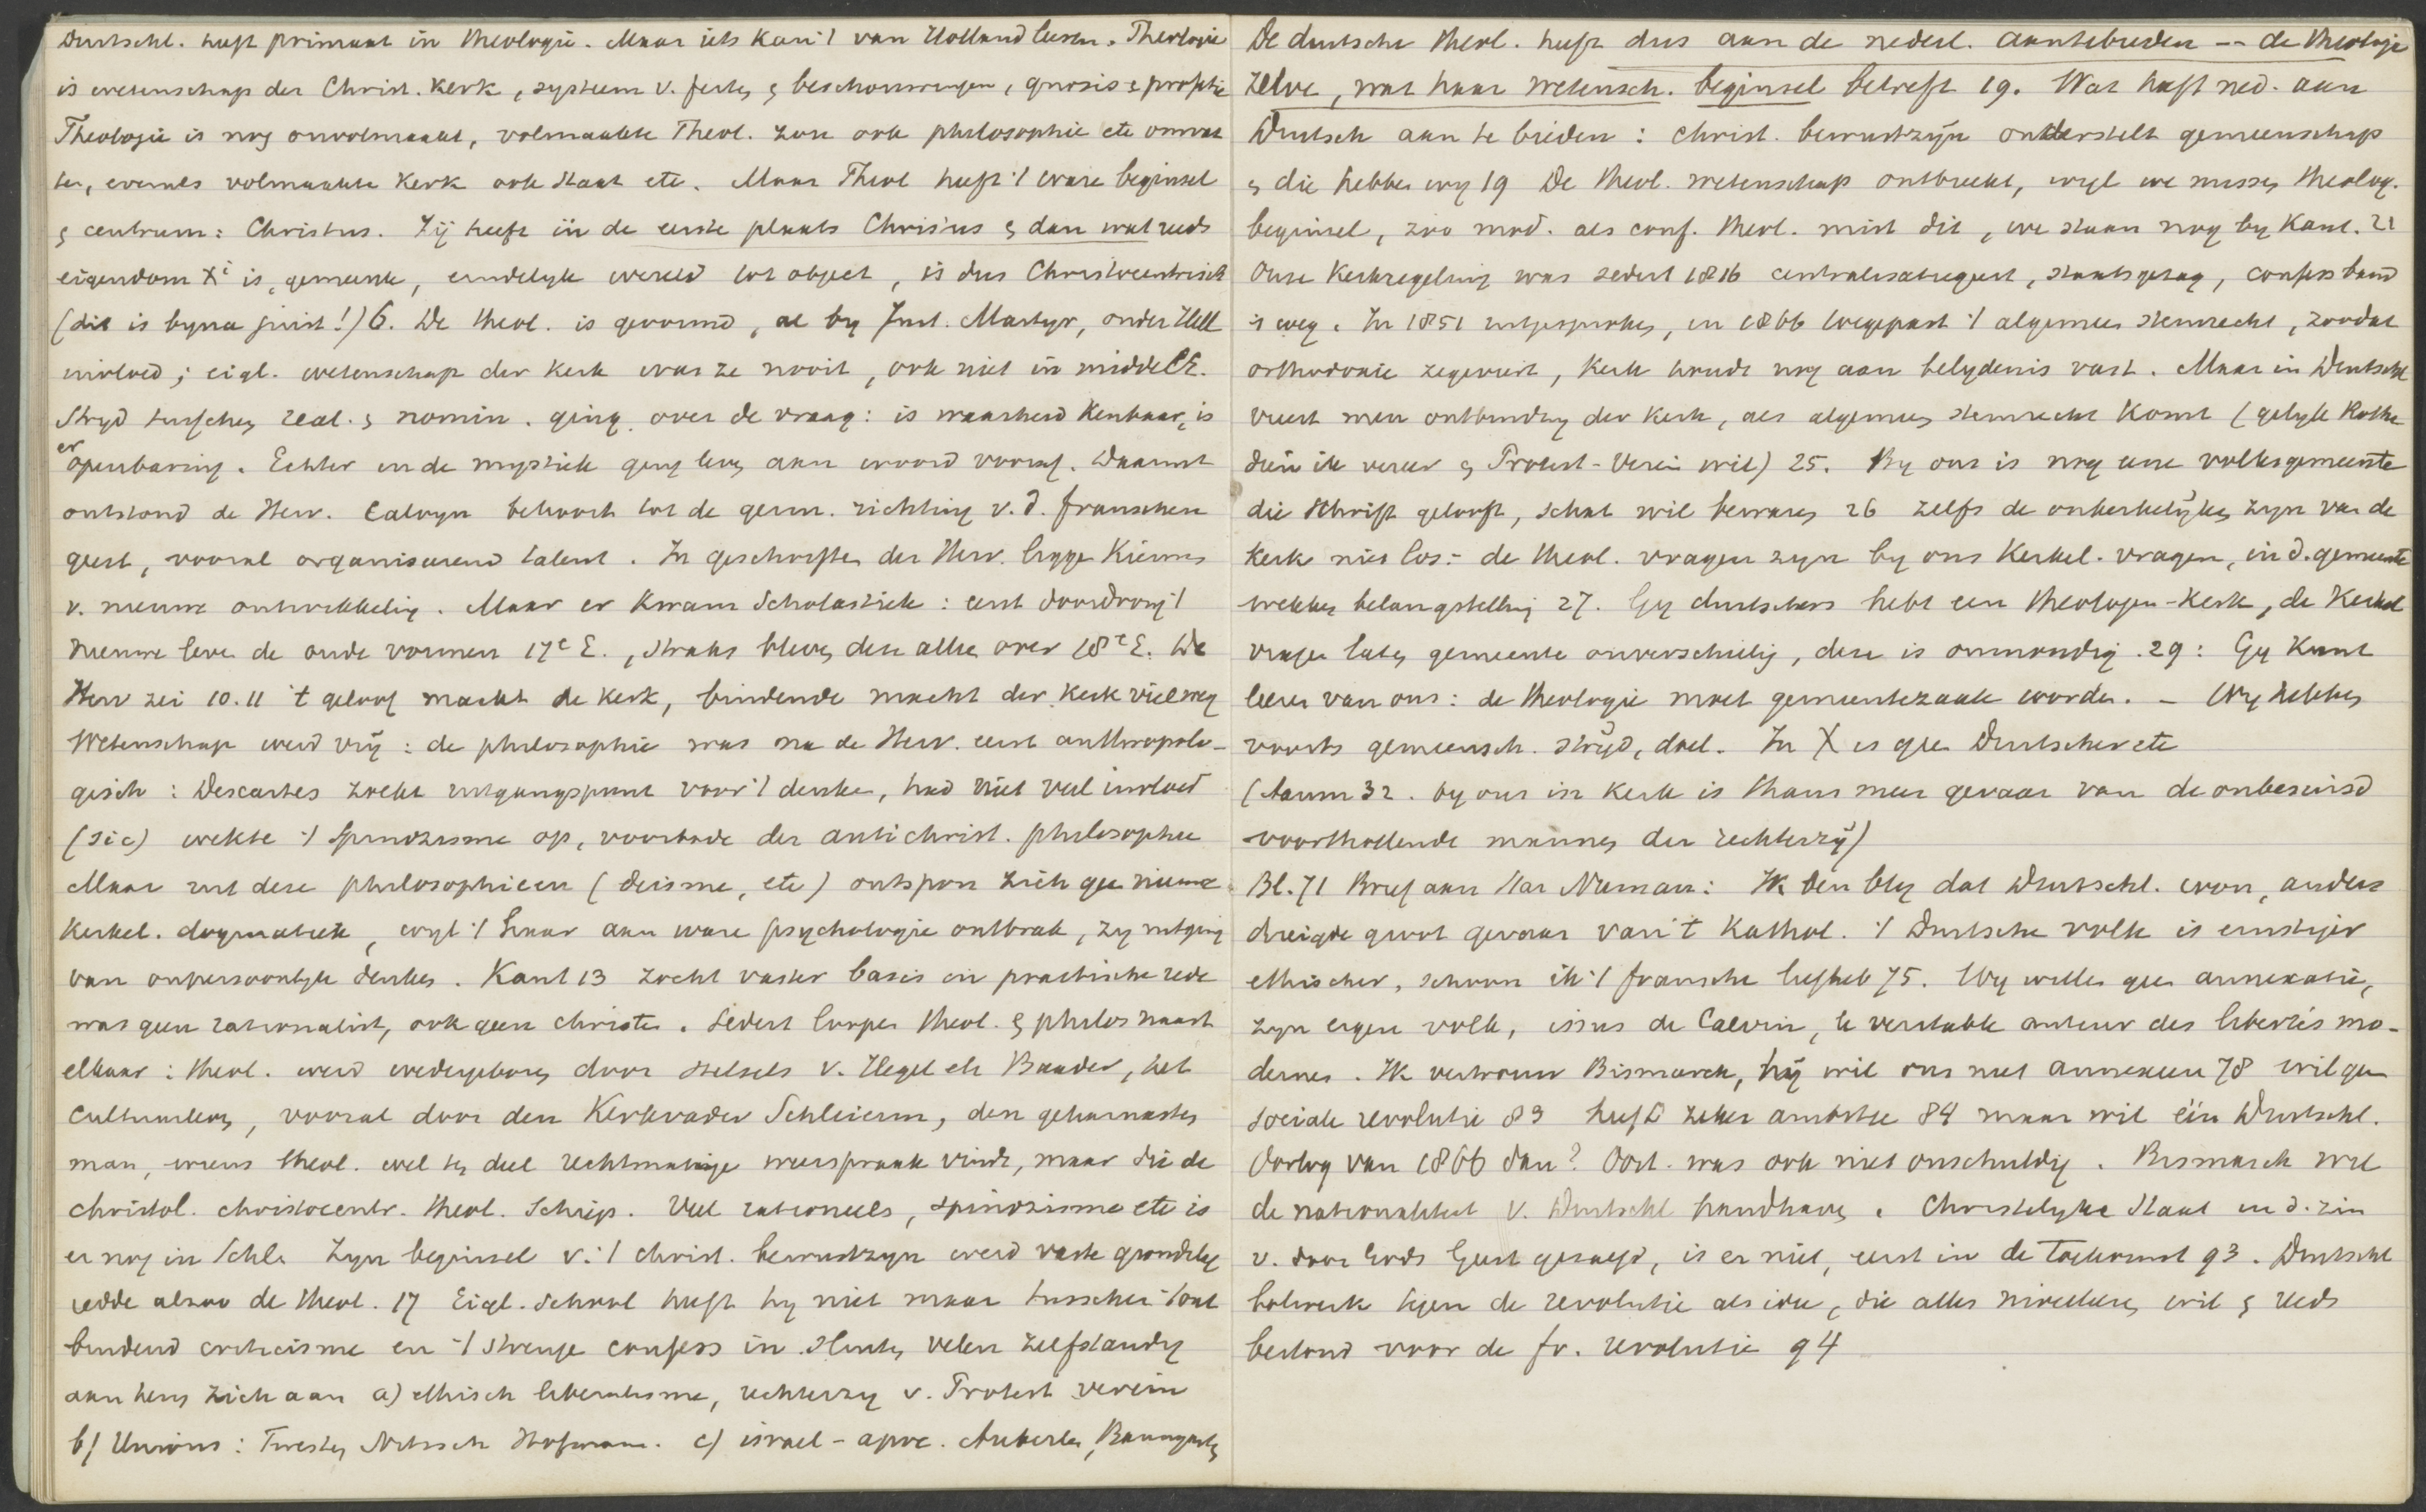 Duitschl. heeft primaat in theologie. Maar iets kan 't van Holland leeren. Theologie
is wetenschap der Christ. Kerk, systeem v. feiten & beschouwingen, gnosis & profetie
Theologie is nog onvolmaakt, volmaakte Theol. zou ook philosophie etc omvat
ten, evenals volmaakte Kerk ook Staat etc. Maar Theol heeft 't ware beginsel
& centrum: Christus. Zij heeft in de eerste plaats Christus & dan wat reeds
eigendom Xi is, gemeente, eindelyk wereld tot object, is dus Christocentrisch
(dit is byna juist!) 6. De theol. is gevormd, al by Just. Martyr, onder Hell
invloed; eigl. wetenschap der Kerk was ze nooit, ook niet in middelE.
Stryd tusschen real. & nomin. ging over de vraag: is waarheid kenbaar, is
er openbaring. Echter in de mystiek ging leven aan woord vooraf. Daaruit
ontstond de Herv. Calvyn behoort tot de germ. richting v. d. franschen
geest, vooral organiseerend talent. In geschriften der Herv. liggen Kiemen
v. nieuwe ontwikkeling. Maar er kwam Scholastiek: eerst doordrong 't
nieuwe leven de oude vormen 17e E., straks bleven deze alleen over 18e E. De
Herv zei 10.11 't geloof maakt de kerk, bindende macht der kerk viel weg
Wetenschap werd vrij: de philosophie was na de Herv. eerst anthropolo-
gisch: Descartes zoekt uitgangspunt voor 't denken, had niet veel invloed
(sic) wekte 't Spinozisme op, voorbode der antichrist. philosophie
Maar uit deze philosophieen (deisme, etc) ontspon zich geen nieuwe
Kerkel. dogmatiek, wyl 't haar aan ware psychologie ontbrak, zy uitging
van onpersoonlyk denken. Kant 13 zocht vaster basis in practische rede
was geen rationalist, ook geen christen. Sedert loopen theol. & philos naast
elkaar: theol. werd wedergeboren door stelsels v. Hegel etc Baader, het
cultuurleven, vooral door den Kerkvader Schleierm, den geharnasten
man, wiens theol. wel ten deel rechtmatige weerspraak vindt, maar die de
christol. christocentr. theol. schiep. Veel rationeels, spinozisme etc is
er nog in Schl. Zyn beginsel v. 't christ. bewustzyn werd vaste grondslag
redde alzoo de theol. 17 Eigl. school heeft hy niet maar tusschen 't ont
bindend criticisme en 't strenge confess in sluiten velen zelfstandig
aan hem zich aan a) ethisch liberalisme, rechterzy v. Protest verein
b) Unions: Twesten Nitzsch Hofmann. c) israel-apoc. Auberlen, Baumgarten
De duitsche theol. heeft dus aan de nederl. aantebieden -- de theologie
zelve, wat haar wetensch. beginsel betreft 19. Wat heeft ned. aan
Duitsch aan te bieden: christ. bewustzijn onderstelt gemeenschap
& die hebben wy 19 De theol. wetenschap ontbreekt, wyl we missen theolog.
beginsel, zoo mod. als conf. theol. mist dit, we staan nog by Kant. 21
Onze Kerkregeling was sedert 1816 centralisatiegeest, staatsgezag, confess band
is weg. In 1851 uitgesproken, in 1866 toegepast 't algemeen stemrecht, zoodat
orthodoxie zegeviert, Kerk houdt nog aan belydenis vast. Maar in Duitschl
vreest men ontbinding der Kerk, als algemeen stemrecht komt (gelyk Rothe
dien ik vereer & Protest-Verein wil) 25. By ons is nog eene volksgemeente
die Schrift gelooft, schat wil bewaren 26 zelfs de onkerkelijken zyn van de
kerk niet los:- de theol. vragen zyn by ons Kerkel. vragen, in d. gemeente
wekken belangstelling 27. Gy duitschers hebt een theologen-Kerk, de Kerkel
vragen laten gemeente onverschillig, deze is onmondig. 29: Gy kunt
leeren van ons: de theologie moet gemeentezaak worden. - Wy hebben
voorts gemeensch. stryd, doel. In X is geen Duitscher etc
(Aanm 32. by ons in Kerk is thans meer gevaar van de onbesuisd
voorthollende mannen der rechterzij)
Bl. 71 Brief aan Nauman: Ik ben bly dat Duitschl. won, anders
dreigde groot gevaar van 't Kathol. 't Duitsche volk is ernstiger
ethischer, schoon ik 't fransche liefheb 75. Wy willen geen annexatie,
zyn eigen volk, issus de Calvin, le veritable auteur des libertés mo-
dernes. Ik vertrouw Bismarck, hij wil ons niet annexeeren 78 wil geen
sociale revolutie 83 heeft zeker ambitie 84 maar wil één Duitschl.
Oorlog van 1866 dan? Oost. was ook niet onschuldig. Bismarck wil
de nationaliteit v. Duitschl handhaven. Christelyke Staat in d. zin
v. door Gods Geest geregeerd, is er niet, eerst in de toekomst 93. Duitschl
bolwerk tegen de revolutie als idee, die alles nivelleren wil & reeds
bestond voor de fr. revolutie 94